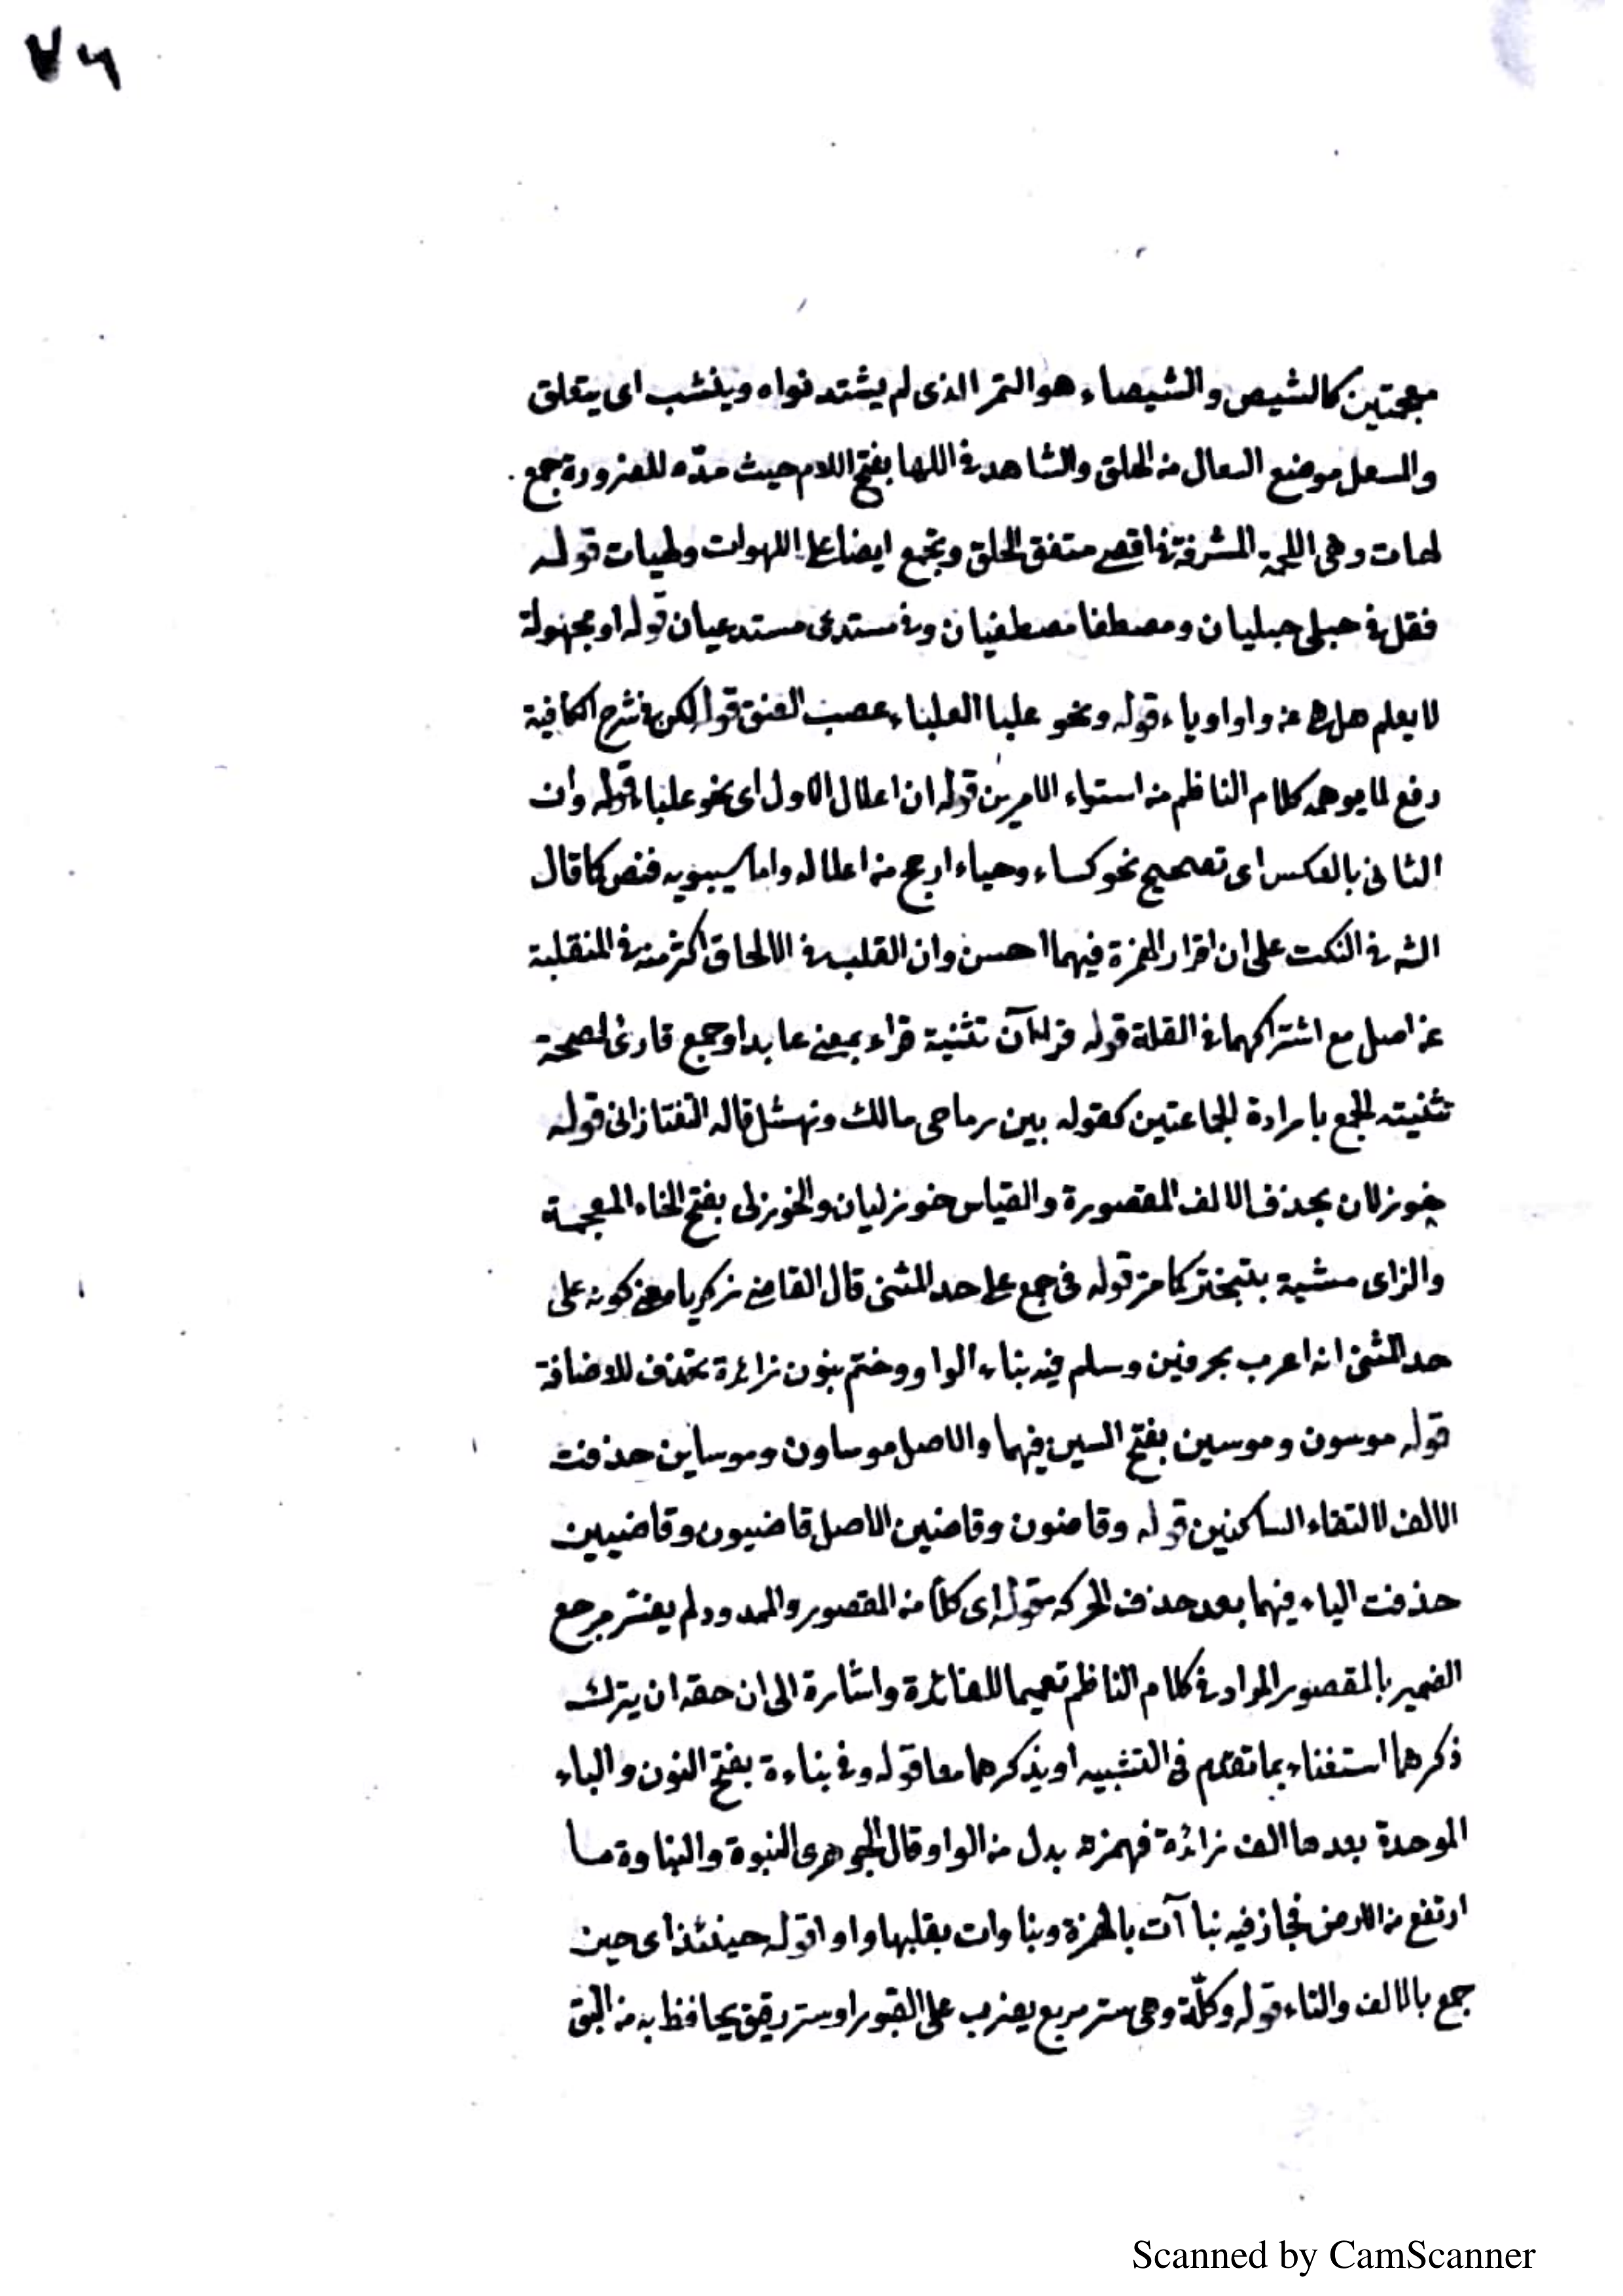 ٧٦
معجمتين كالشيص والشيصاء هو التمر الذى لم يشتد نواه وينشب اى يتعلق
والمسعل موضع السعال من الحلق والشاهد في اللها بفتح اللام حيث مدّه للضرورة جمع
لهات وهى اللحمة المشرفة في اقصى الحلق وتجمع ايضا على اللهوات ولهيات قوله
فقل في حبلى حبليان ومصطفا مصطفيان وفي مستدعى مستدعيان قوله او مجهولة
لا يعلم هل عن واو او ياء قوله ونحو علبا العلباء عصب العنق قوله لكن في شرح الكافية
دفع لما يوهمه كلام الناظم من استواء الامرين قوله ان اعلال الاول اى نحو علباء قوله وان
الثانى بالعكس اى تصحيح نحو كساء وحياء ارجح من اعلاله واما سيبويه فنص كما قال
الشه في النكت على ان اقرار الهمزة فيهما احسن وان القلب في الالحاق اكثر منه في المنقلبة
عن اصل مع اشتراكهما في القلة قوله قراآن تثنية قراء بمعنى عابد او جمع قارئ لصحة
تثنيته الجمع بارادة الجماعتين كقوله بين رماحى مالك ونهشل قاله التفتازانى قوله
خوزلان بحذف الالف المقصورة والقياس خوزليان والخوزلى بفتح الخاء المعجمة
والزاى مشية بتبختر كما مر قوله فى جمع على حد المثنى قال القاضى زكريا معنى كونه على
حد المثنى انه اعرب بحرفين وسلم فيه بناء الواو وختم بنون زائدة تحذف للاضافة
قوله موسون وموسين بفتح السين فيهما والاصل موساون وموساين حذفت
الالف لالتقاء الساكنين قوله وقاضون وقاضين الاصل قاضيون وقاضيين
حذفت الياء فيهما بعد حذف الحركة قوله اى كلّا من المقصور والممدود ولم يفسّر مرجع
الضمير بالمقصور المراد في كلام الناظم تعميما للفائدة واشارة الى ان حقه ان يترك
ذكرهما استغناء بما تقدم فى التشبيه او يذكرهما معا قوله وفي بناءة بفتح النون والباء
الموحدة بعدها الف زائدة فهمزته بدل من الواو قال الجوهرى النبوة والنباوة ما
ارتفع من الارض فجاز فيه نباآت بالهمزة ونباوات بقلبها واوا قوله حينئذ اى حين
جمع بالالف والتاء قوله وكلّة وهى ستر مربع يضرب على القبور او ستر رقيق يحافظ به من البق
Scanned by CamScanner